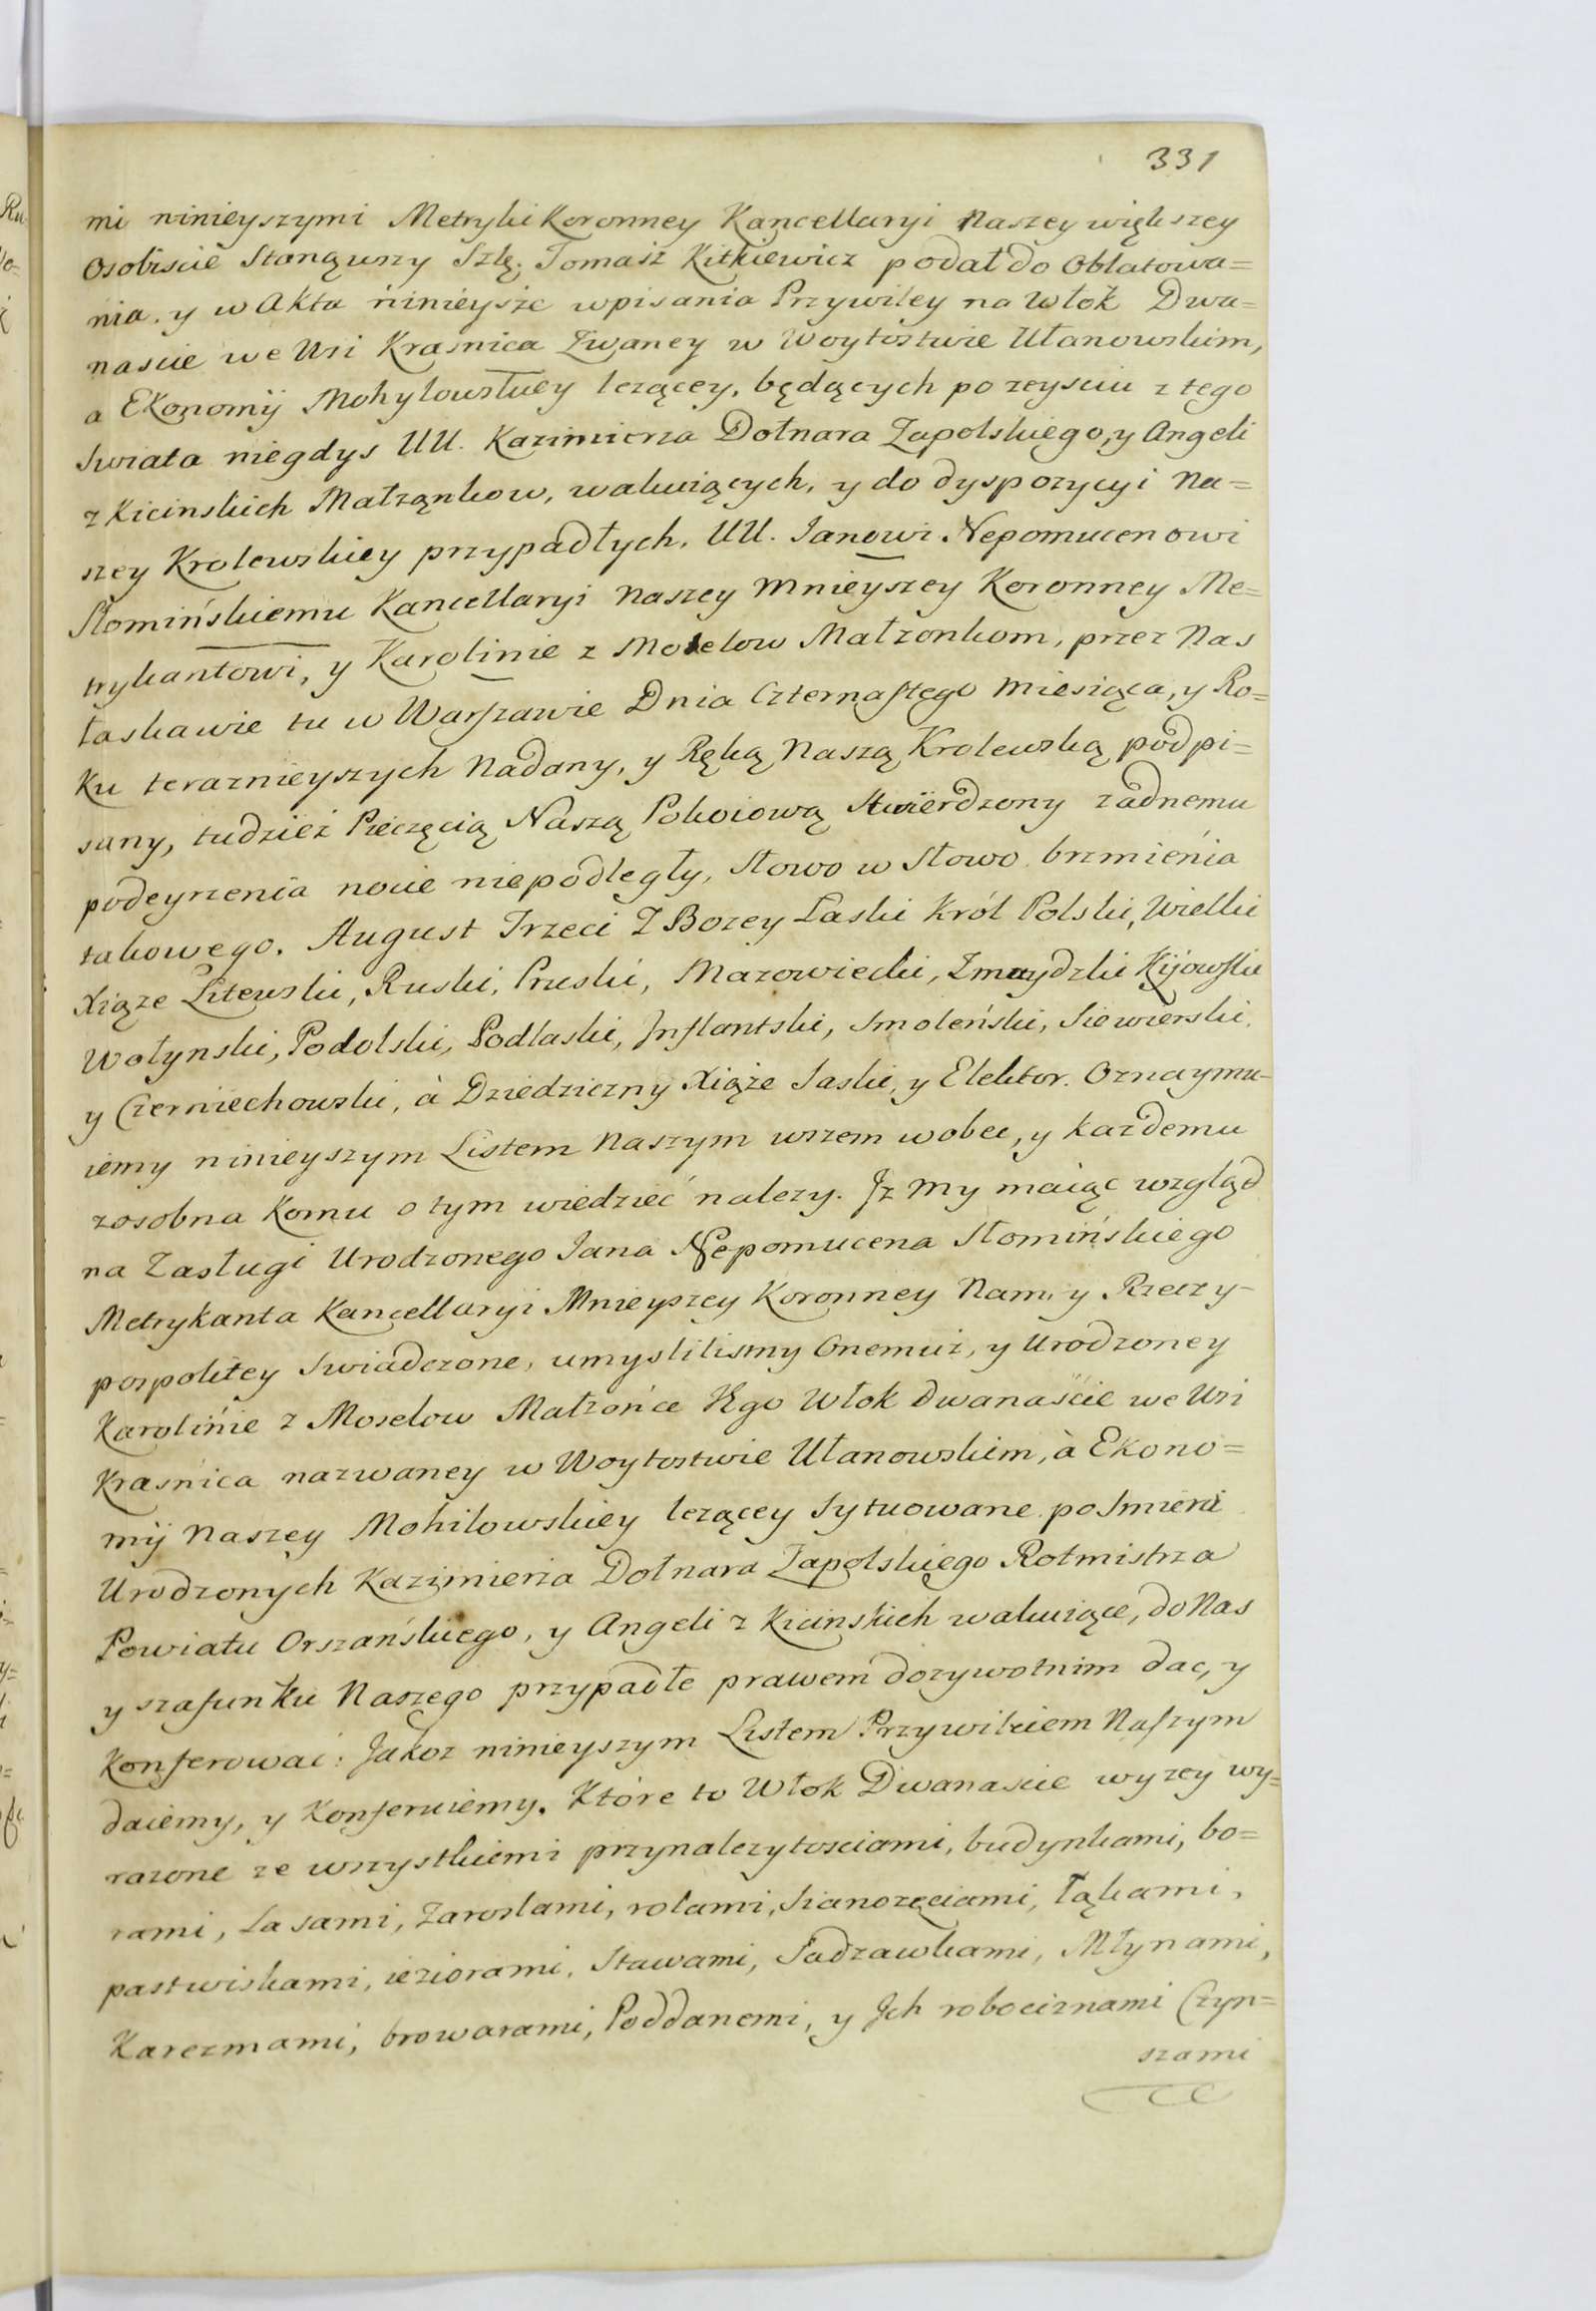 331
mi ninieyszymi Metryki Koronney Kancellaryi Naszey większey
Osobiscie Stanąwszy Szlę. Tomasz Kitkiewicz podał do Oblatowa=
nia. y w Akta ninieysze wpisania Przywiley na Włok Dwa=
nascie we Wsi Krasnica Zwaney w Woytostwie Ułanowskim,
a Ekonomij Mohylowskiey lezącey, będących po zeysciu z tego
Swiata niegdys UU. Kazimierza Dołnara Zapolskiego, y Angeli
z Kicinskich Małząnkow, wakuiących, y do dyspozycyi Na=
szey Krolewskiey przypadłych. UU. Janowi Nepomucenowi
Słomińskiemu Kancellaryi Naszey Mnieyszey Koronney Me=
trykantowi, y Karolinie z Moselow Małzonkom, przez Nas
łaskawie tu w Warszawie Dnia Czternastego Miesiąca, y Ro=
ku teraznieyszych Nadany, y Ręką Naszą Krolewską podpi=
sany, tudziesz Pieczęcią Naszą Pokoiową Stwierdzony zadnemu
podeyrzenia nocie niepodległy, Słowo w Słowo brzmienia
takowego. August Trzeci Z Bozey Laski Król Polski, Wielki
Xiąze Litewski, Ruski, Pruski, Mazowiecki, Zmuydzki Kijowski
Wołynski, Podolski, Podlaski, Inflantski, Smoleński, Siewierski,
y Czerniechowski, à Dziedziczny Xiąże Saski, y Elektor. Oznaymu-
iemy ninieyszym Listem Naszym wszem wobec, y kazdemu
zosobna Komu o tym wiedzieć nalezy. Iz My maiąc wzgląd
na Zasługi Urodzonego Jana Nepomucena Słomińskiego
Metrykanta Kancellaryi Mnieyszey Koronney Nam y Rzeczy-
pospolitey Swiadczone, umyslilismy Onemuż, y Urodzoney
Karolinie z Moselow Małzońce Jego Włok dwanaście we Wsi
Krasnica nazwaney w Woytostwie Ułanowskim, à Ekono=
mij Naszey Mohilowskiey lezącey Sytuowane po Smierci
Urodzonych Kazimierza Dołnara Zapolskiego Rotmistrza
Powiatu Orszańskiego, y Angeli z Kicinskich wakuiące, do Nas
y szafunku Naszego przypadłe prawem dozywotnim dac, y
Konferowac: Jakoz ninieyszym Listem Przywileiem Naszym
daiemy, y Konferuiemy. Które to Włok Dwanascie wyzey wy=
razone ze wszystkiemi przynalezytosciami, budynkami, bo=
rami, Lasami, Zaroslami, rolami, Sianozęciami, łąkami,
pastwiskami, ieziorami, Stawami, Sadzawkami, Młynami,
Karczmami, browarami, Poddanemi, y Ich robociznami Czyn=
szami